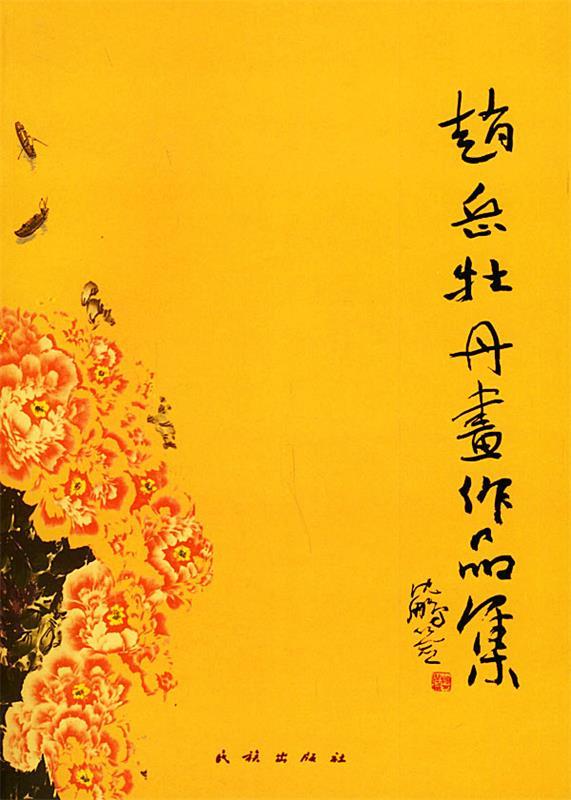 趙岳牡丹畫作品集
沈鵬題
民族出版社